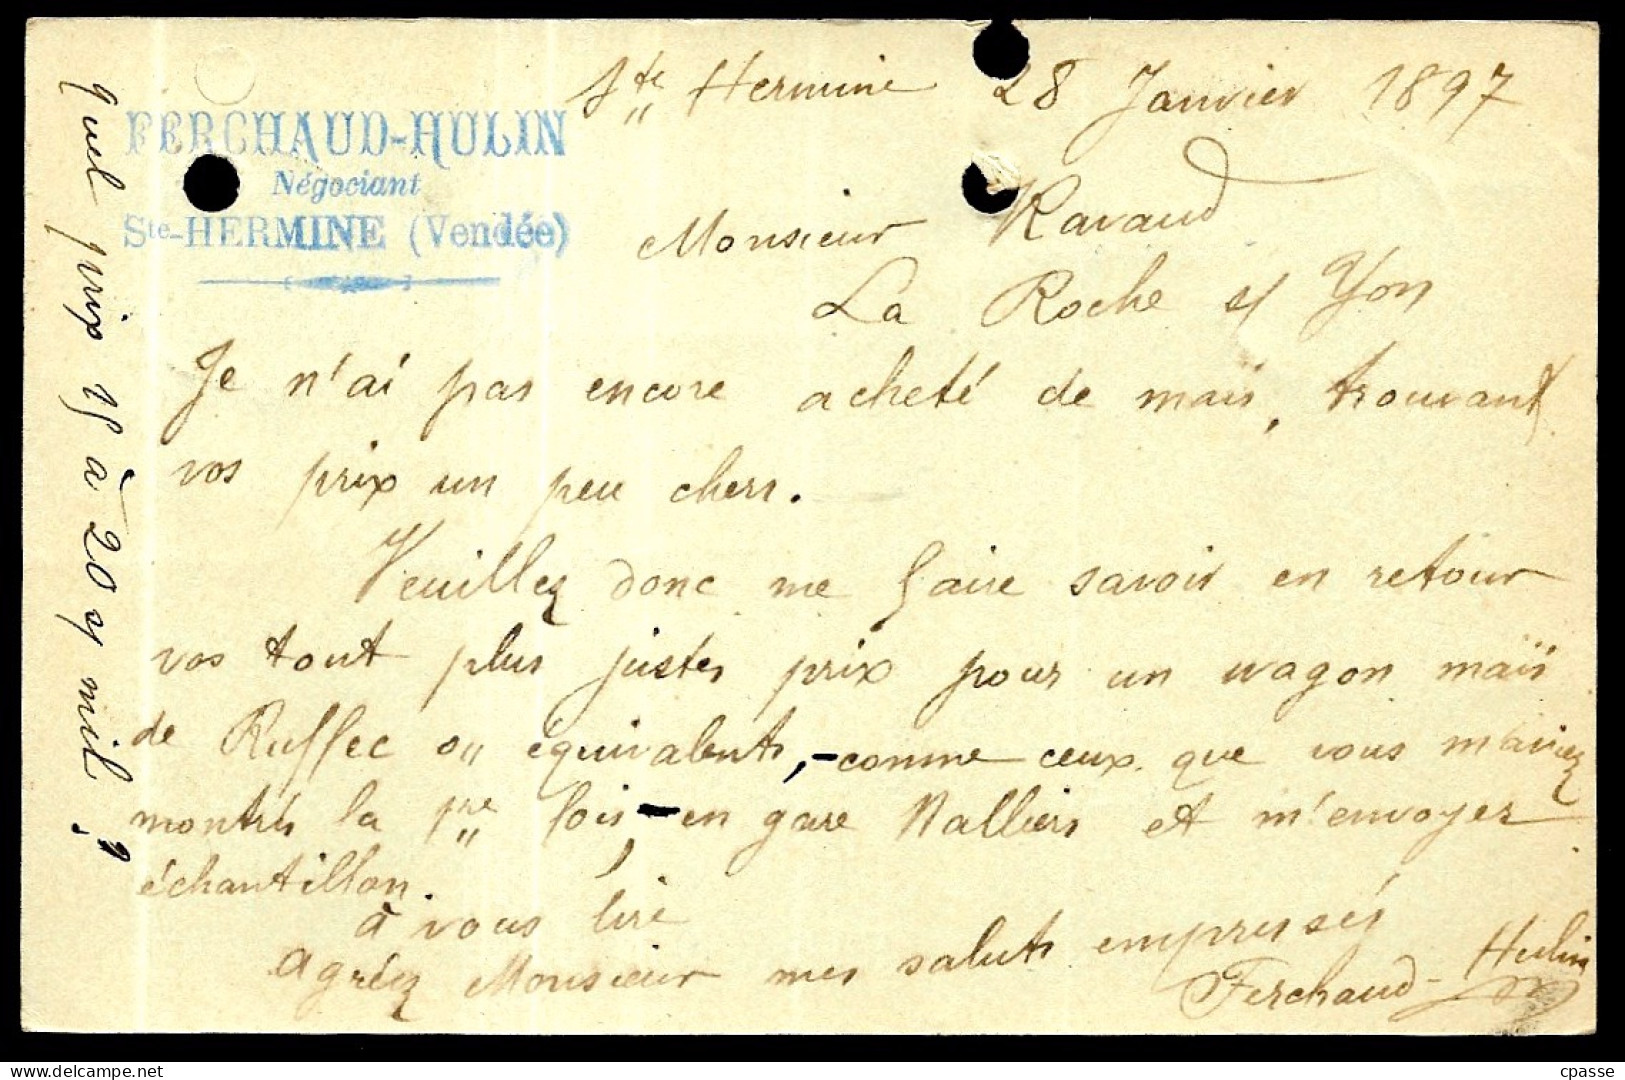 FERCHAUD-HULIN
Négociant
Ste-HERMINE (Vendée)
Ste Hermine 28 Janvier 1897
Monsieur Ravaud
La Roche s/ Yon
Je n'ai pas encore acheté de maïs, trouvant
vos prix un peu chers.
Veuillez donc me faire savoir en retour
vos tout plus justes prix pour un wagon maïs
de Ruffec ou équivalents, - comme ceux que vous m'aviez
montrés la 1re fois, - en gare Nalliers et m'envoyer
échantillon.
à vous lire
agréez Monsieur mes saluts empressés
Ferchaud-Hulin
quel prix 15 à 20 s/ mil ?
cpasse
www.delcampe.net